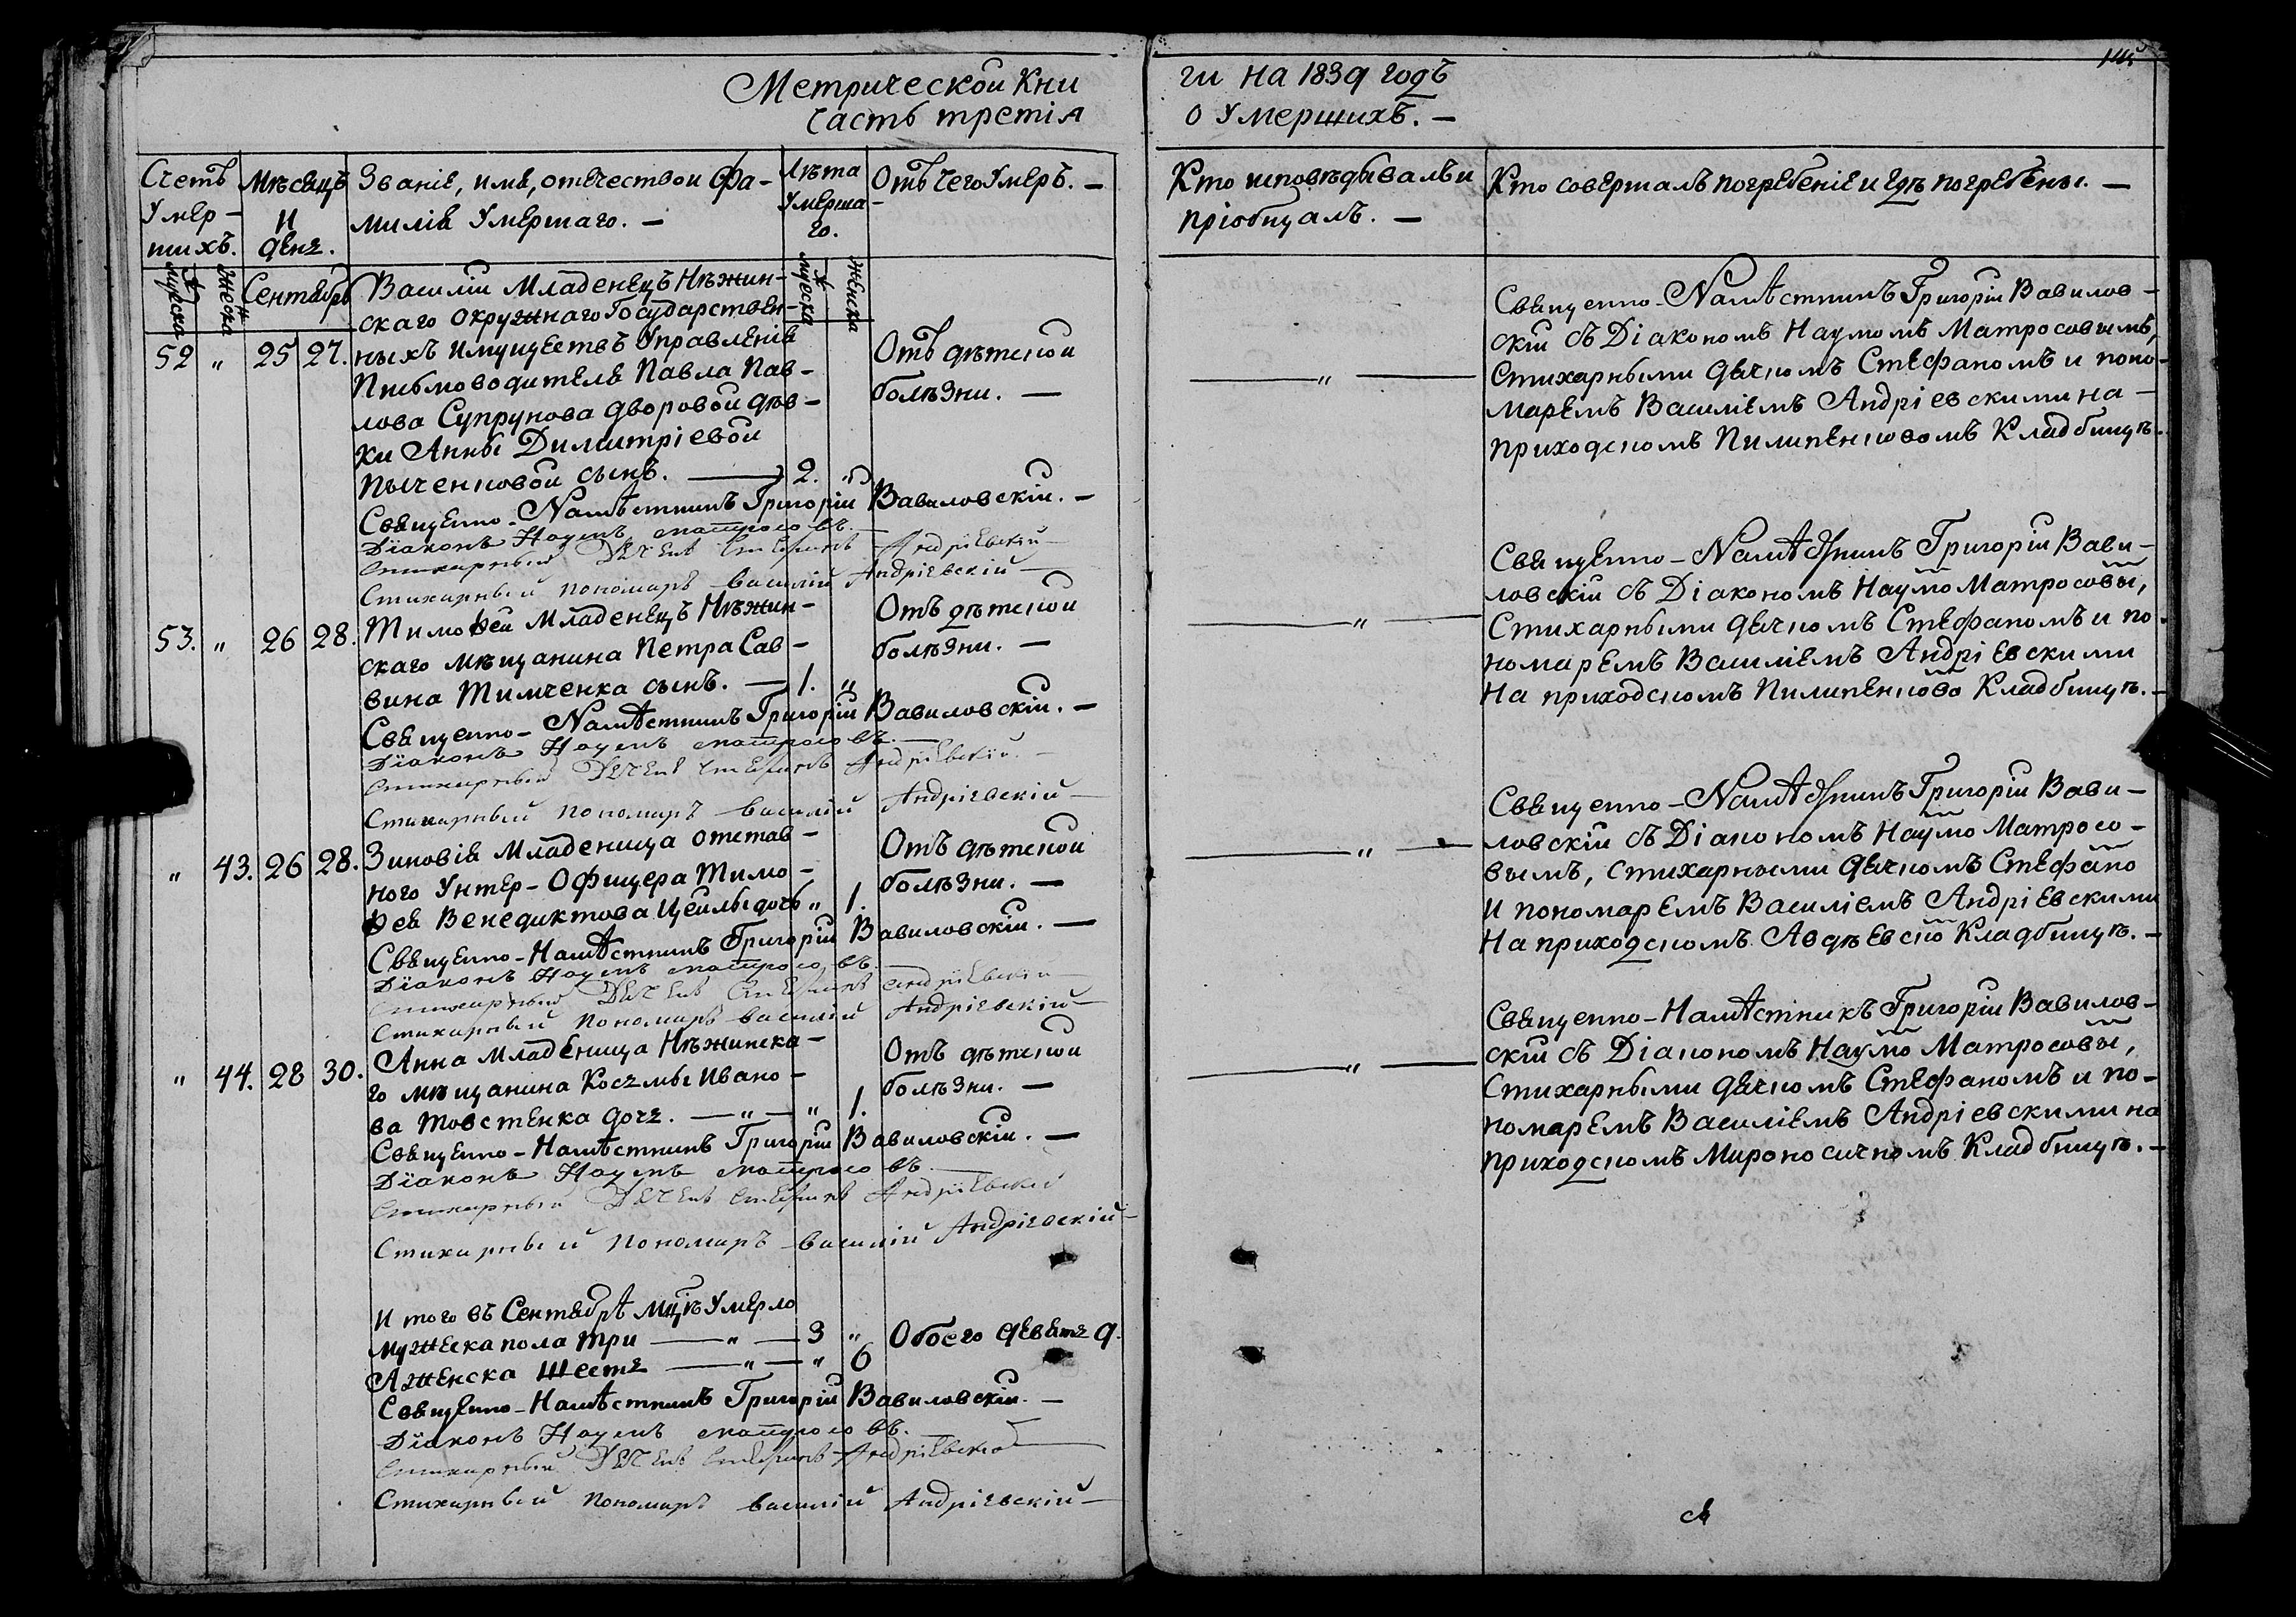 Метрической Кни
Часть третія
Счетъ
Умер-
шихъ.
Мѣсяцъ
и
день.
Званіе, имя, отечество и фа-
милія Умершаго. —
Лѣта
Умерша-
го.
Отъ чего Умеръ. —
мужеска
женска
Сентябрь
мужеска
женска
Василій Младенецъ Нѣжин-
скаго окружнаго Государствен-
52 " 25 27. ныхъ имуществъ Управленія
Отъ дѣтской
Письмоводителя Павла Пав-
болѣзни. —
лова Супрунова дворовой дѣв-
ки Анны Димитріевой
сынъ. — 2. "
Священно-Намѣстникъ Григорій Вавиловскій. —
Діаконъ Наумъ Матросовъ. —
Стихарный Дячекъ Стефанъ Андріевскій —
Стихарный пономарь Василій Андріевскій —
53. " 26 28. Тимофей Младенецъ Нѣжин-
Отъ дѣтской
скаго мѣщанина Петра Сав-
болѣзни. —
вина Тимченка сынъ. — 1. "
Священно-Намѣстникъ Григорій Вавиловскій. —
Діаконъ Наумъ Матросовъ. —
Стихарный Дячекъ Стефанъ Андріевскій. —
Стихарный пономарь Василій Андріевскій —
" 43. 26 28. Зиновія Младеница отстав-
Отъ дѣтской
ного Унтер-Офицера Тимо-
болѣзни. —
фея Венедиктова дочь " 1.
Священно-Намѣстникъ Григорій Вавиловскій. —
Діаконъ Наумъ Матросовъ. —
Стихарный Дячекъ Стефанъ Андріевскій —
Стихарный пономарь Василій Андріевскій —
" 44. 28 30. Анна Младеница Нѣжинска-
Отъ дѣтской
го мѣщанина Косьмы Ивано-
болѣзни. —
ва Товстенка дочь. — " — " 1.
Священно-Намѣстникъ Григорій Вавиловскій. —
Діаконъ Наумъ Матросовъ —
Стихарный Дячекъ Стефанъ Андріевскій
Стихарный пономарь Василій Андріевскій —
Итого въ Сентябрѣ мцѣ Умерло
мужеска пола три — " — 3 " Обоего девять 9.
А женска шесть — " — " 6
Священно-Намѣстникъ Григорій Вавиловскій. —
Діаконъ Наумъ Матросовъ.
Стихарный Дячекъ Стефанъ Андріевскій
Стихарный пономарь Василій Андріевскій —
ги на 1839 годъ
о Умершихъ. —
Кто исповѣдывалъ и
пріобщалъ. —
Кто совершалъ погребеніе и гдѣ погребены. —
Священно-Намѣстникъ Григорій Вавилов-
скій съ Діакономъ Наумомъ Матросовымъ,
— " — Стихарными дячкомъ Стефаномъ и поно-
маремъ Василіемъ Андріевскими на-
приходскомъ Пилипенковомъ Кладбищѣ.
Священно-Намѣстникъ Григорій Вави-
ловскій съ Діакономъ Наумо Матросовы,
— " — Стихарными дячкомъ Стефаномъ и по-
номаремъ Василіемъ Андріевскими
на приходскомъ Пилипенково Кладбищѣ. —
Священно-Намѣстникъ Григорій Вави-
ловскій съ Діакономъ Наумо Матросо-
— " — вымъ, стихарными дячкомъ Стефано
и пономаремъ Василіемъ Андріевскими
на приходскомъ Авдѣевско Кладбищѣ. —
Священно-Намѣстникъ Григорій Вавилов-
скій съ Діакономъ Наумо Матросовы,
— " — Стихарными дячкомъ Стефаномъ и по-
номаремъ Василіемъ Андріевскими на
приходскомъ Мироносичномъ Кладбищѣ. —